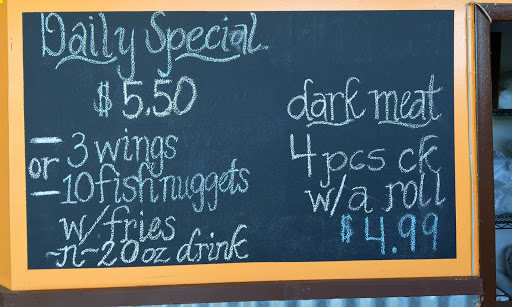 Daily Special
$5.50
- 3 wings
or
- 10 fish nuggets
w/fries
-n-20oz drink
dark meat
4 pcs ck
w/a roll
$4.99